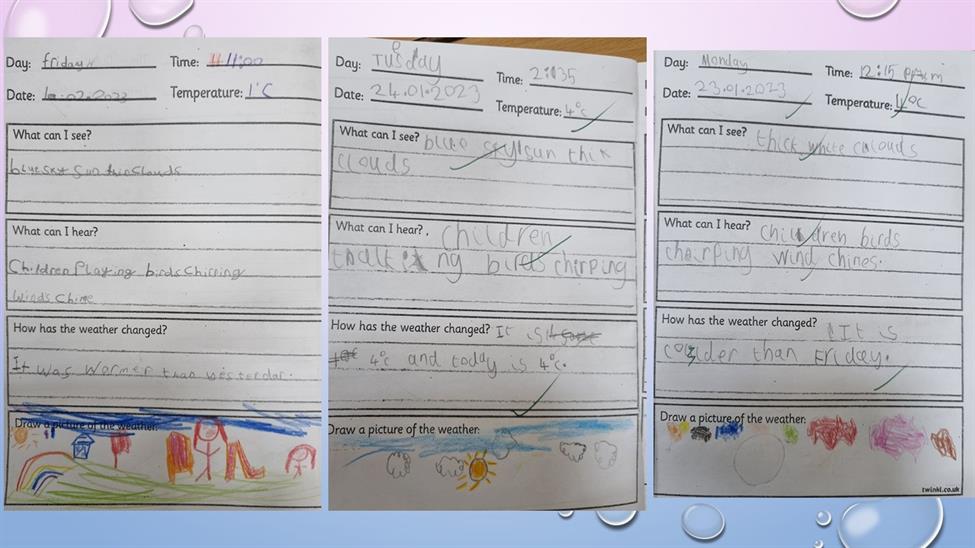 Day: friday Time: 11:00
Date: 10.02.2023 Temperature: 1°C
What can I see?
blue sky sun thin clouds
What can I hear?
Children Playing birds Chirping
winds Chime
How has the weather changed?
It was wormer than yesterdar.
Draw a picture of the weather:
Day: Tuesday Time: 2:35
Date: 24.01.2023
Temperature: 4°C
What can I see? blue sky sun thik
clouds
What can I hear? children
birds chirping
How has the weather changed? It is
4°c and today is 4°c.
Draw a picture of the weather:
Day: Monday Time: 12:15
Date: 23.01.2023 Temperature: 4°C
What can I see? thick white clouds
What can I hear? children birds
charping wind chines.
How has the weather changed? It is
colder than Friday.
Draw a picture of the weather:
twinkl.co.uk